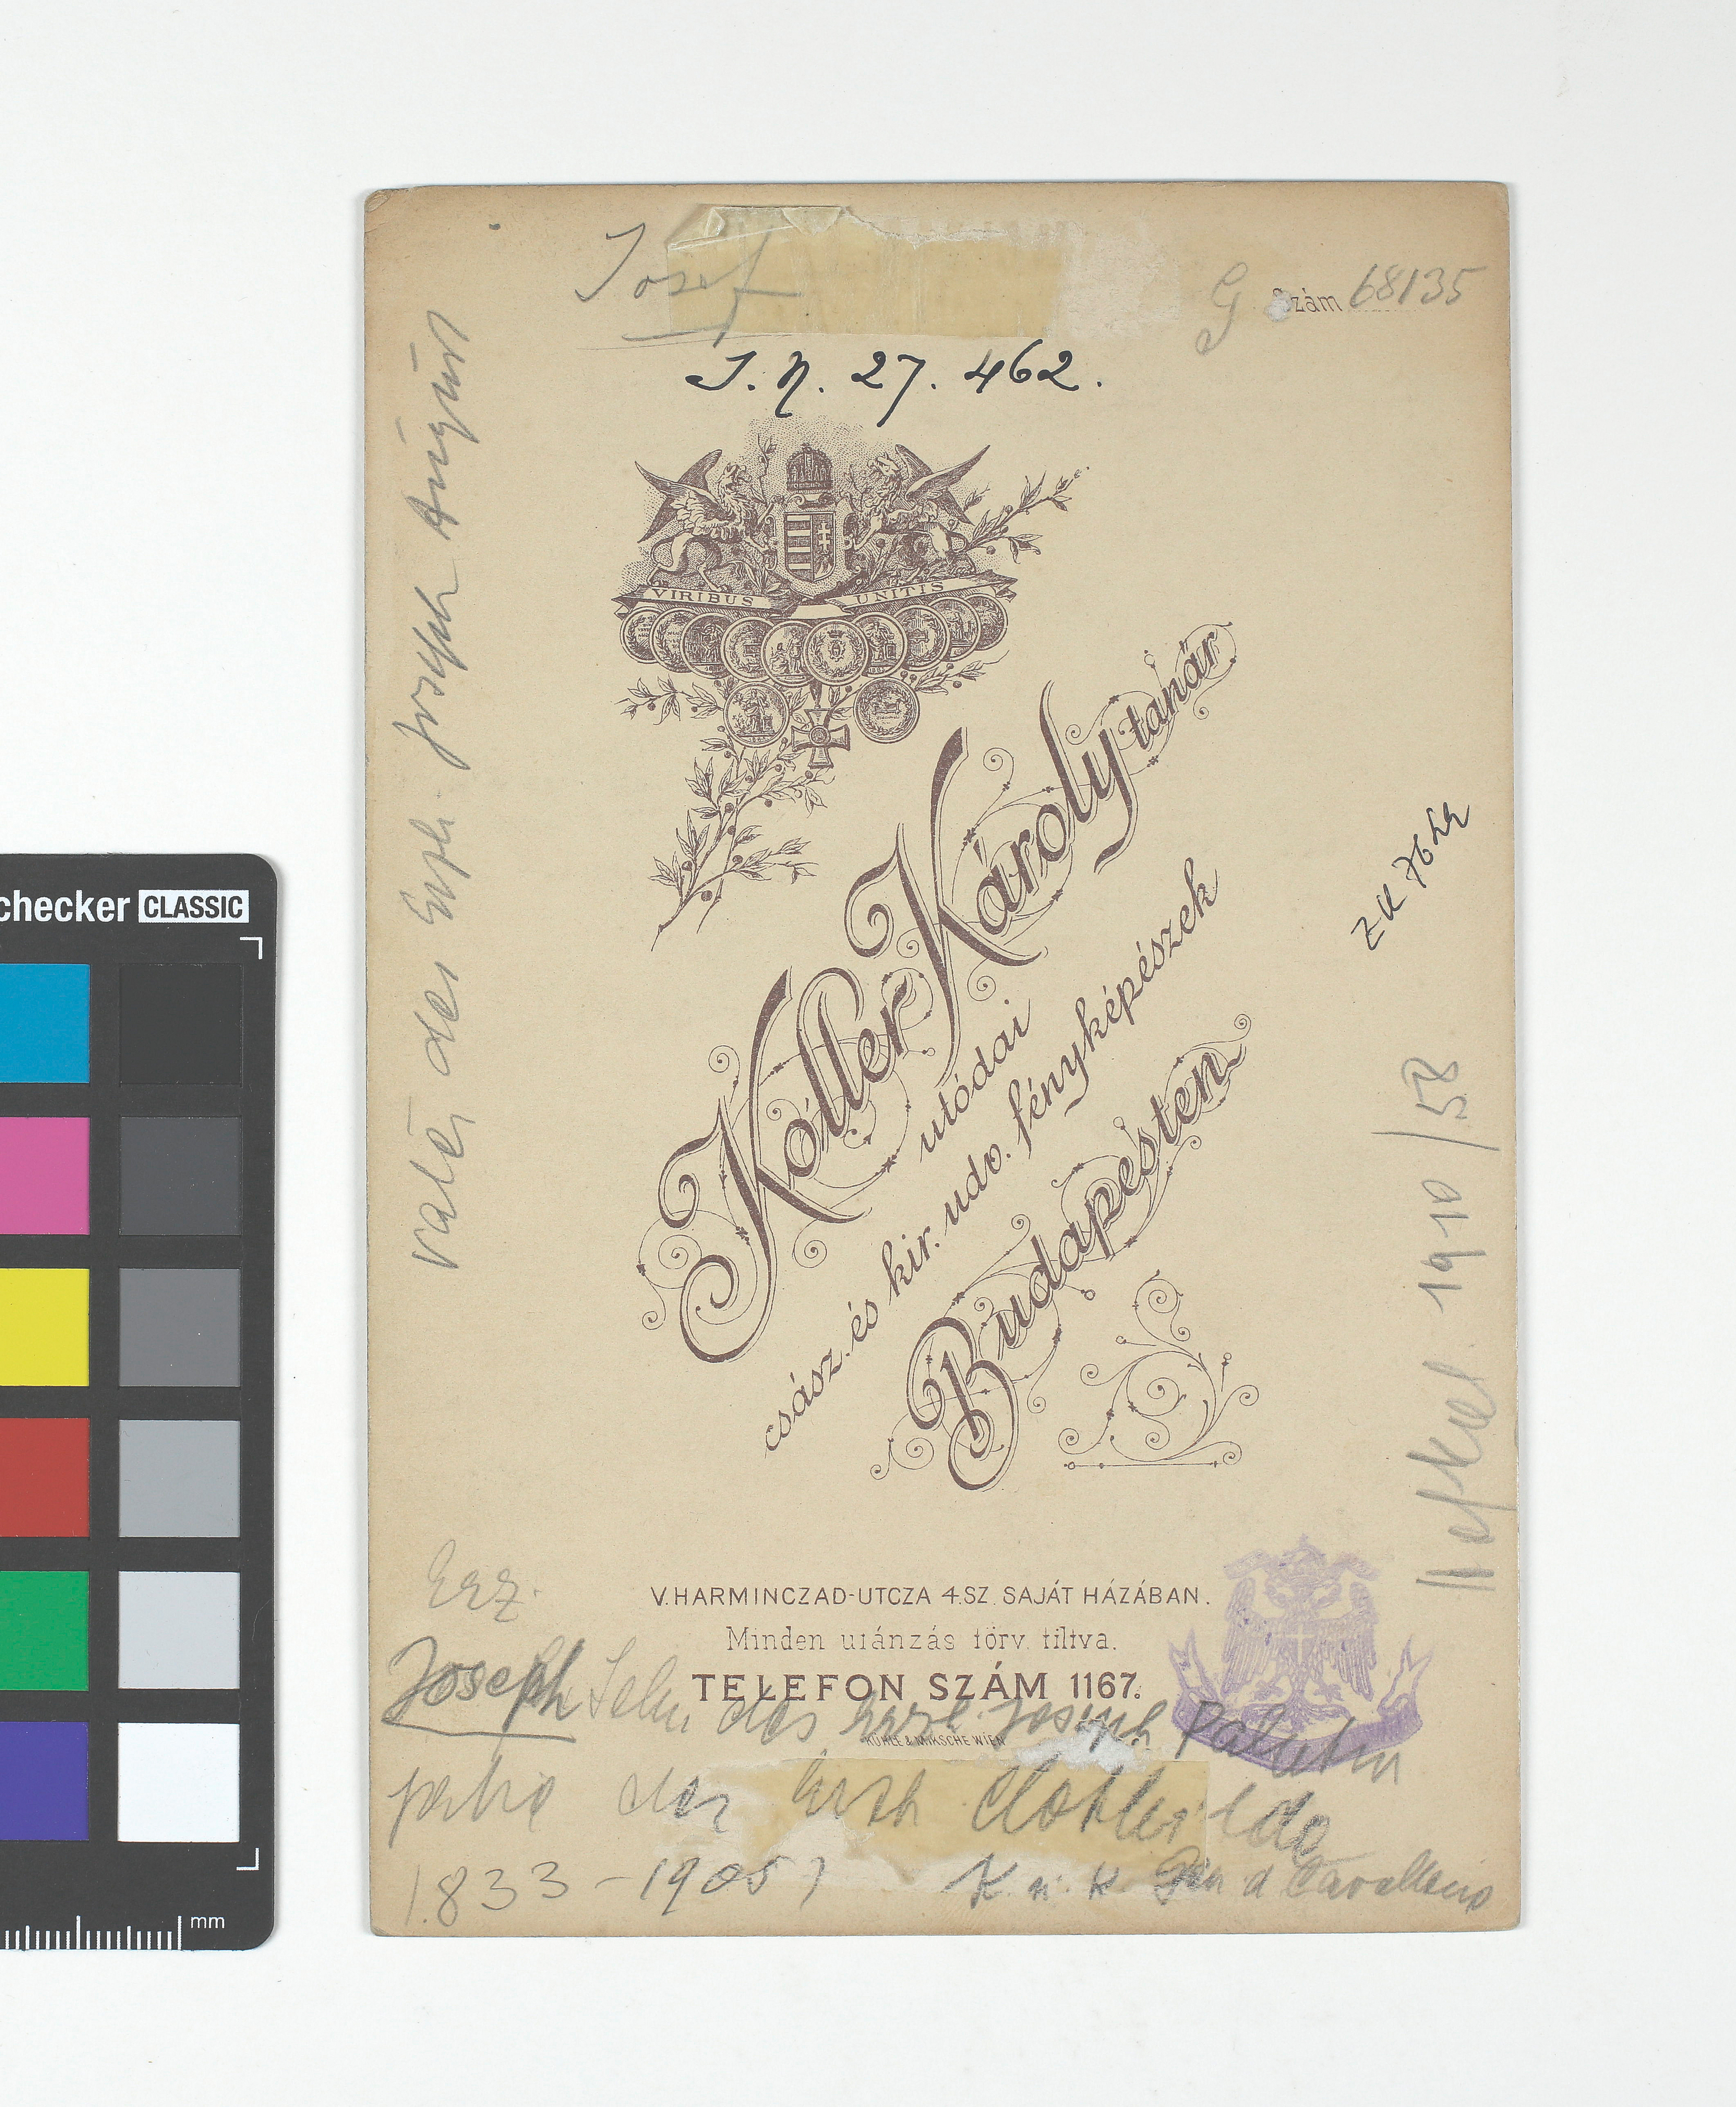 Josef
G Szám 68135
J. N. 27. 462.
VIRIBUS UNITIS
Koller Károly tanár
utódai
csász. és kir. udv. fényképészek
Budapesten
V. HARMINCZAD-UTCZA 4.SZ. SAJÁT HÁZÁBAN.
Minden utánzás törv. tiltva.
TELEFON SZÁM 1167.
KÜHLE & MIKSCHE WIEN
Vater des Erzh. Joseph August
1910/58
Erz.
Joseph Sohn des Erzh. Joseph Palatin
der Erzh Clothilde
1833-1905
K. u. K. Gen d Cavallerie
checker CLASSIC
mm